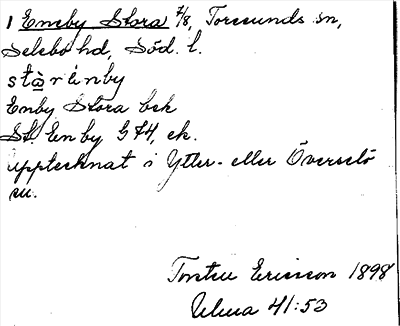 1 Eneby Stora 7/8, Toresunds sn,
Selebo hd, Söd. l.
stàrénby
Enby Stora bsk
St. Enby G FH, ek.
upptecknat i Ytter- eller Överselö
sn.
Torsten Ericsson 1898
41:53